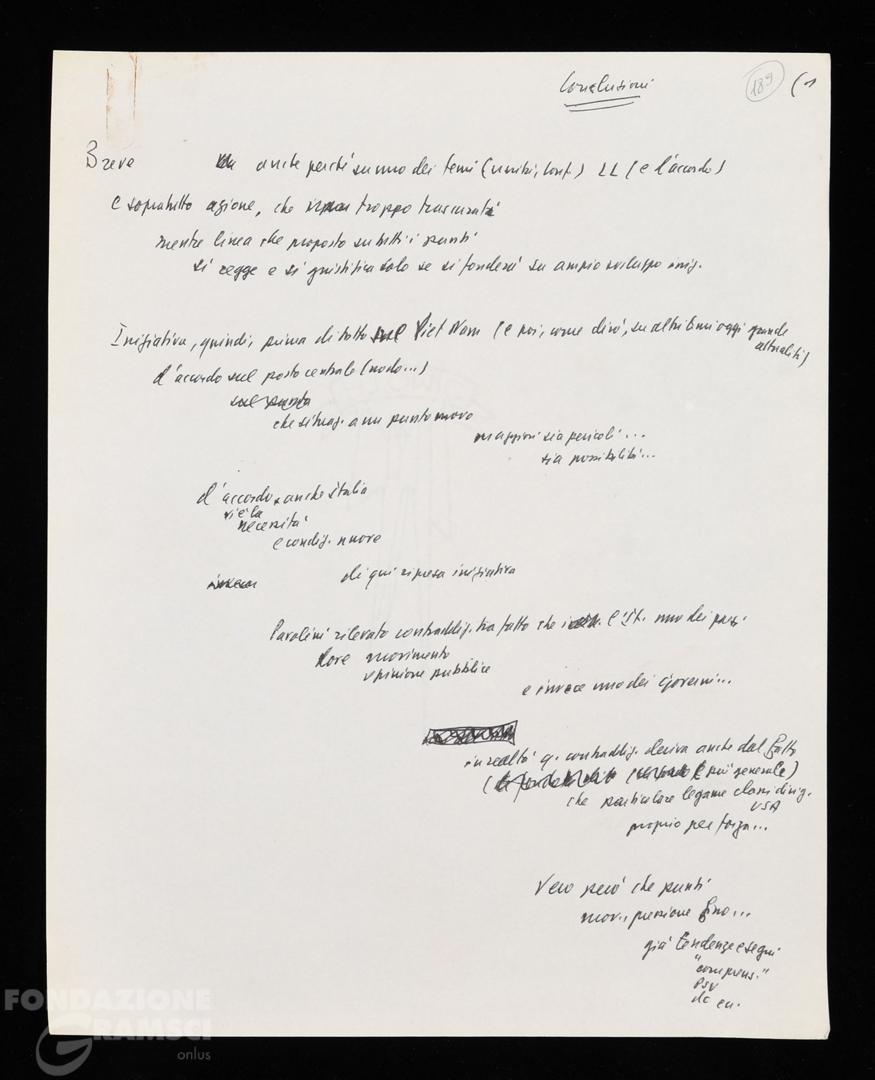 Conclusioni
189 (1
Breve anche perché su uno dei temi (unità, conf.) LL (e d'accordo)
e sopratutto azione, che troppo trascurata
mentre linea che proposto su tutti i punti
si regge e si giustifica solo se si fonderà su ampio sviluppo iniz.
Iniziativa, quindi, prima di tutto sul Viet Nam (e poi, come dirò, su altri temi oggi grande
attualità)
d'accordo sul posto centrale (nodo...)
sul punto
che situaz. a un punto nuovo
maggiori sia pericoli...
sia possibilità...
d'accordo anche Italia
vi è la
necessità
e condiz. nuove
di qui ripresa iniziativa
Pavolini rilevato contraddiz. tra fatto che l'It. uno dei paesi
dove movimento
opinione pubblica
e invece uno dei governi...
in realtà q. contraddiz. deriva anche dal fatto
più generale)
che particolare legame classi dirig.
USA
proprio per forza...
Vero però che punti
mov., pressione fino...
già tendenze e segni
"comprens."
PSU
dc ecc.
FONDAZIONE
GRAMSCI
onlus